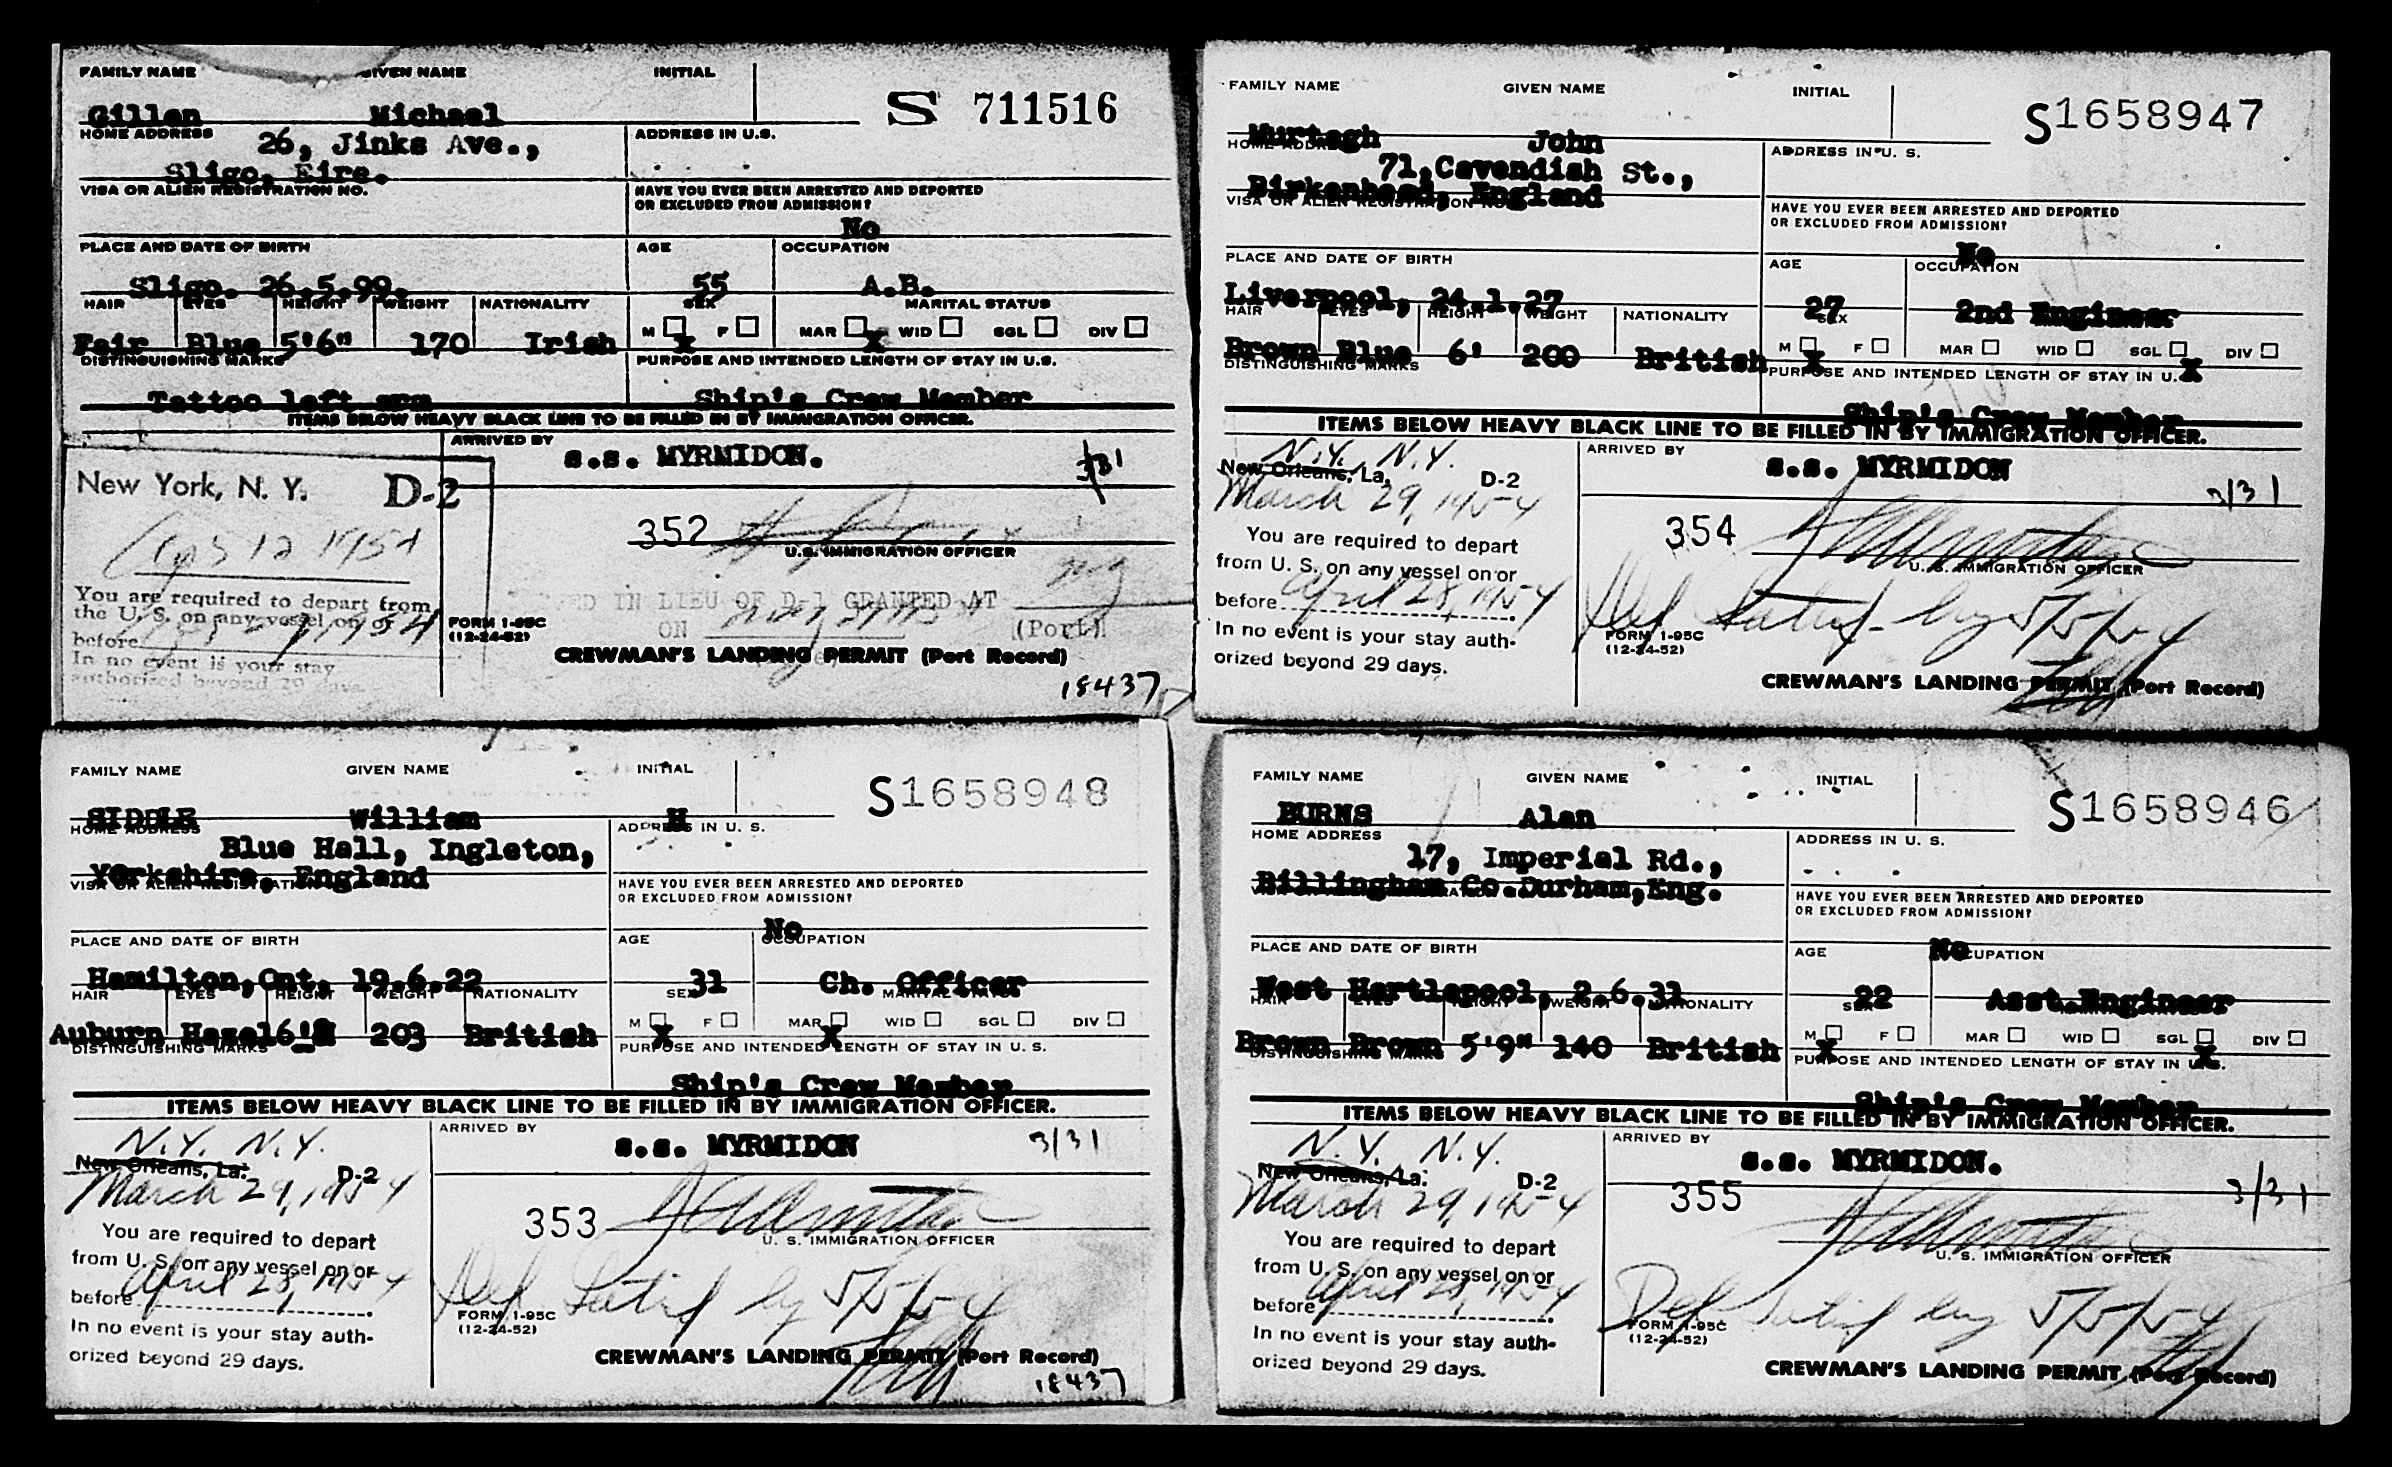 FAMILY NAME GIVEN NAME INITIAL
S 711516
Gillen Michael
HOME ADDRESS 26, Jinks Ave.,
ADDRESS IN U.S.
Sligo, Eire.
VISA OR ALIEN REGISTRATION NO.
HAVE YOU EVER BEEN ARRESTED AND DEPORTED
OR EXCLUDED FROM ADMISSION?
No
PLACE AND DATE OF BIRTH AGE OCCUPATION
Sligo. 26.5.99. 55 A.B.
HAIR EYES HEIGHT WEIGHT NATIONALITY SEX MARITAL STATUS
M F MAR WID SGL DIV
Fair Blue 5'6" 170 Irish X X
DISTINGUISHING MARKS PURPOSE AND INTENDED LENGTH OF STAY IN U.S.
Tattoo left arm Ship's Crew Member
ITEMS BELOW HEAVY BLACK LINE TO BE FILLED IN BY IMMIGRATION OFFICER.
ARRIVED BY
s.s. MYRMIDON. 3/31
New York, N. Y. D-2
352
U.S. IMMIGRATION OFFICER
You are required to depart from
the U. S. on any vessel on or
before
In no event is your stay
authorized beyond 29 days
IN LIEU OF D-1 GRANTED AT
ON (Port)
FORM I-95C
(12-24-52)
CREWMAN'S LANDING PERMIT (Port Record)
18437
FAMILY NAME GIVEN NAME INITIAL
S1658947
Murtagh John
HOME ADDRESS
71,Cavendish St.,
ADDRESS IN U. S.
Birkenhead, England
VISA OR ALIEN REGISTRATION NO.
HAVE YOU EVER BEEN ARRESTED AND DEPORTED
OR EXCLUDED FROM ADMISSION?
No
PLACE AND DATE OF BIRTH AGE OCCUPATION
Liverpool, 24.1.27 27 2nd Engineer
HAIR EYES HEIGHT WEIGHT NATIONALITY SEX
M F MAR WID SGL DIV
Brown Blue 6' 200 British X X
DISTINGUISHING MARKS PURPOSE AND INTENDED LENGTH OF STAY IN U.
Ship's Crew Member
ITEMS BELOW HEAVY BLACK LINE TO BE FILLED IN BY IMMIGRATION OFFICER.
N.Y. N.Y.
ARRIVED BY
s.s. MYRMIDON
New Orleans, La. D-2
3/31
March 29, 1954
354
You are required to depart
from U. S. on any vessel on or
U. S. IMMIGRATION OFFICER
before April 28, 1954
Def Satisf. by 5/5/54
In no event is your stay auth-
orized beyond 29 days.
FORM I-95C
(12-24-52)
CREWMAN'S LANDING PERMIT (Port Record)
FAMILY NAME GIVEN NAME INITIAL
S1658948
SIDDLE William H
HOME ADDRESS
ADDRESS IN U. S.
Blue Hall, Ingleton,
Yorkshire, England
VISA OR ALIEN REGISTRATION
HAVE YOU EVER BEEN ARRESTED AND DEPORTED
OR EXCLUDED FROM ADMISSION?
No
PLACE AND DATE OF BIRTH AGE OCCUPATION
Hamilton,Ont. 19.6.22 31 Ch. Officer
HAIR EYES HEIGHT WEIGHT NATIONALITY SEX MARITAL STATUS
M F MAR WID SGL DIV
Auburn Hazel 203 British X X
DISTINGUISHING MARKS PURPOSE AND INTENDED LENGTH OF STAY IN U. S.
Ship's Crew Member
ITEMS BELOW HEAVY BLACK LINE TO BE FILLED IN BY IMMIGRATION OFFICER.
N.Y. N.Y.
ARRIVED BY
s.s. MYRMIDON 3/31
New Orleans, La. D-2
March 29, 1954
353
You are required to depart
U. S. IMMIGRATION OFFICER
from U. S. on any vessel on or
before April 28, 1954
Def Satisf by 5/5/54
In no event is your stay auth-
orized beyond 29 days.
FORM I-95C
(12-24-52)
CREWMAN'S LANDING PERMIT (Port Record)
18437
FAMILY NAME GIVEN NAME INITIAL
S1658946
BURNS Alan
HOME ADDRESS
ADDRESS IN U. S.
17, Imperial Rd.,
Billingham Co.Durham,Eng.
HAVE YOU EVER BEEN ARRESTED AND DEPORTED
OR EXCLUDED FROM ADMISSION?
PLACE AND DATE OF BIRTH AGE No OCCUPATION
West Hartlepool, 2.6.31 22 Asst.Engineer
HAIR EYES HEIGHT WEIGHT NATIONALITY SEX
M F MAR WID SGL DIV
Brown Brown 5'9" 140 British X X
DISTINGUISHING MARKS PURPOSE AND INTENDED LENGTH OF STAY IN U.S.
Ship's Crew Member
ITEMS BELOW HEAVY BLACK LINE TO BE FILLED IN BY IMMIGRATION OFFICER.
N.Y. N.Y.
ARRIVED BY
s.s. MYRMIDON.
New Orleans, La. D-2
3/31
March 29, 1954
355
You are required to depart
U. S. IMMIGRATION OFFICER
from U. S. on any vessel on or
before April 28, 1954
Def Satisf by 5/5/54
In no event is your stay auth-
orized beyond 29 days.
FORM I-95C
(12-24-52)
CREWMAN'S LANDING PERMIT (Port Record)